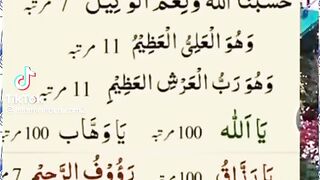 حَسْبُنَا اللّٰهُ وَنِعْمَ الْوَكِيْلُ 7 مرتبہ
وَهُوَ الْعَلِيُّ الْعَظِيْمُ 11 مرتبہ
وَهُوَ رَبُّ الْعَرْشِ الْعَظِيْمِ 11 مرتبہ
يَا اَللّٰه 100 مرتبہ يَا وَهَّاب 100 مرتبہ
يَا رَزَّاقُ 100 مرتبہ رَؤُوْفُ الرَّحِيْم 7 مرتبہ
TikTok